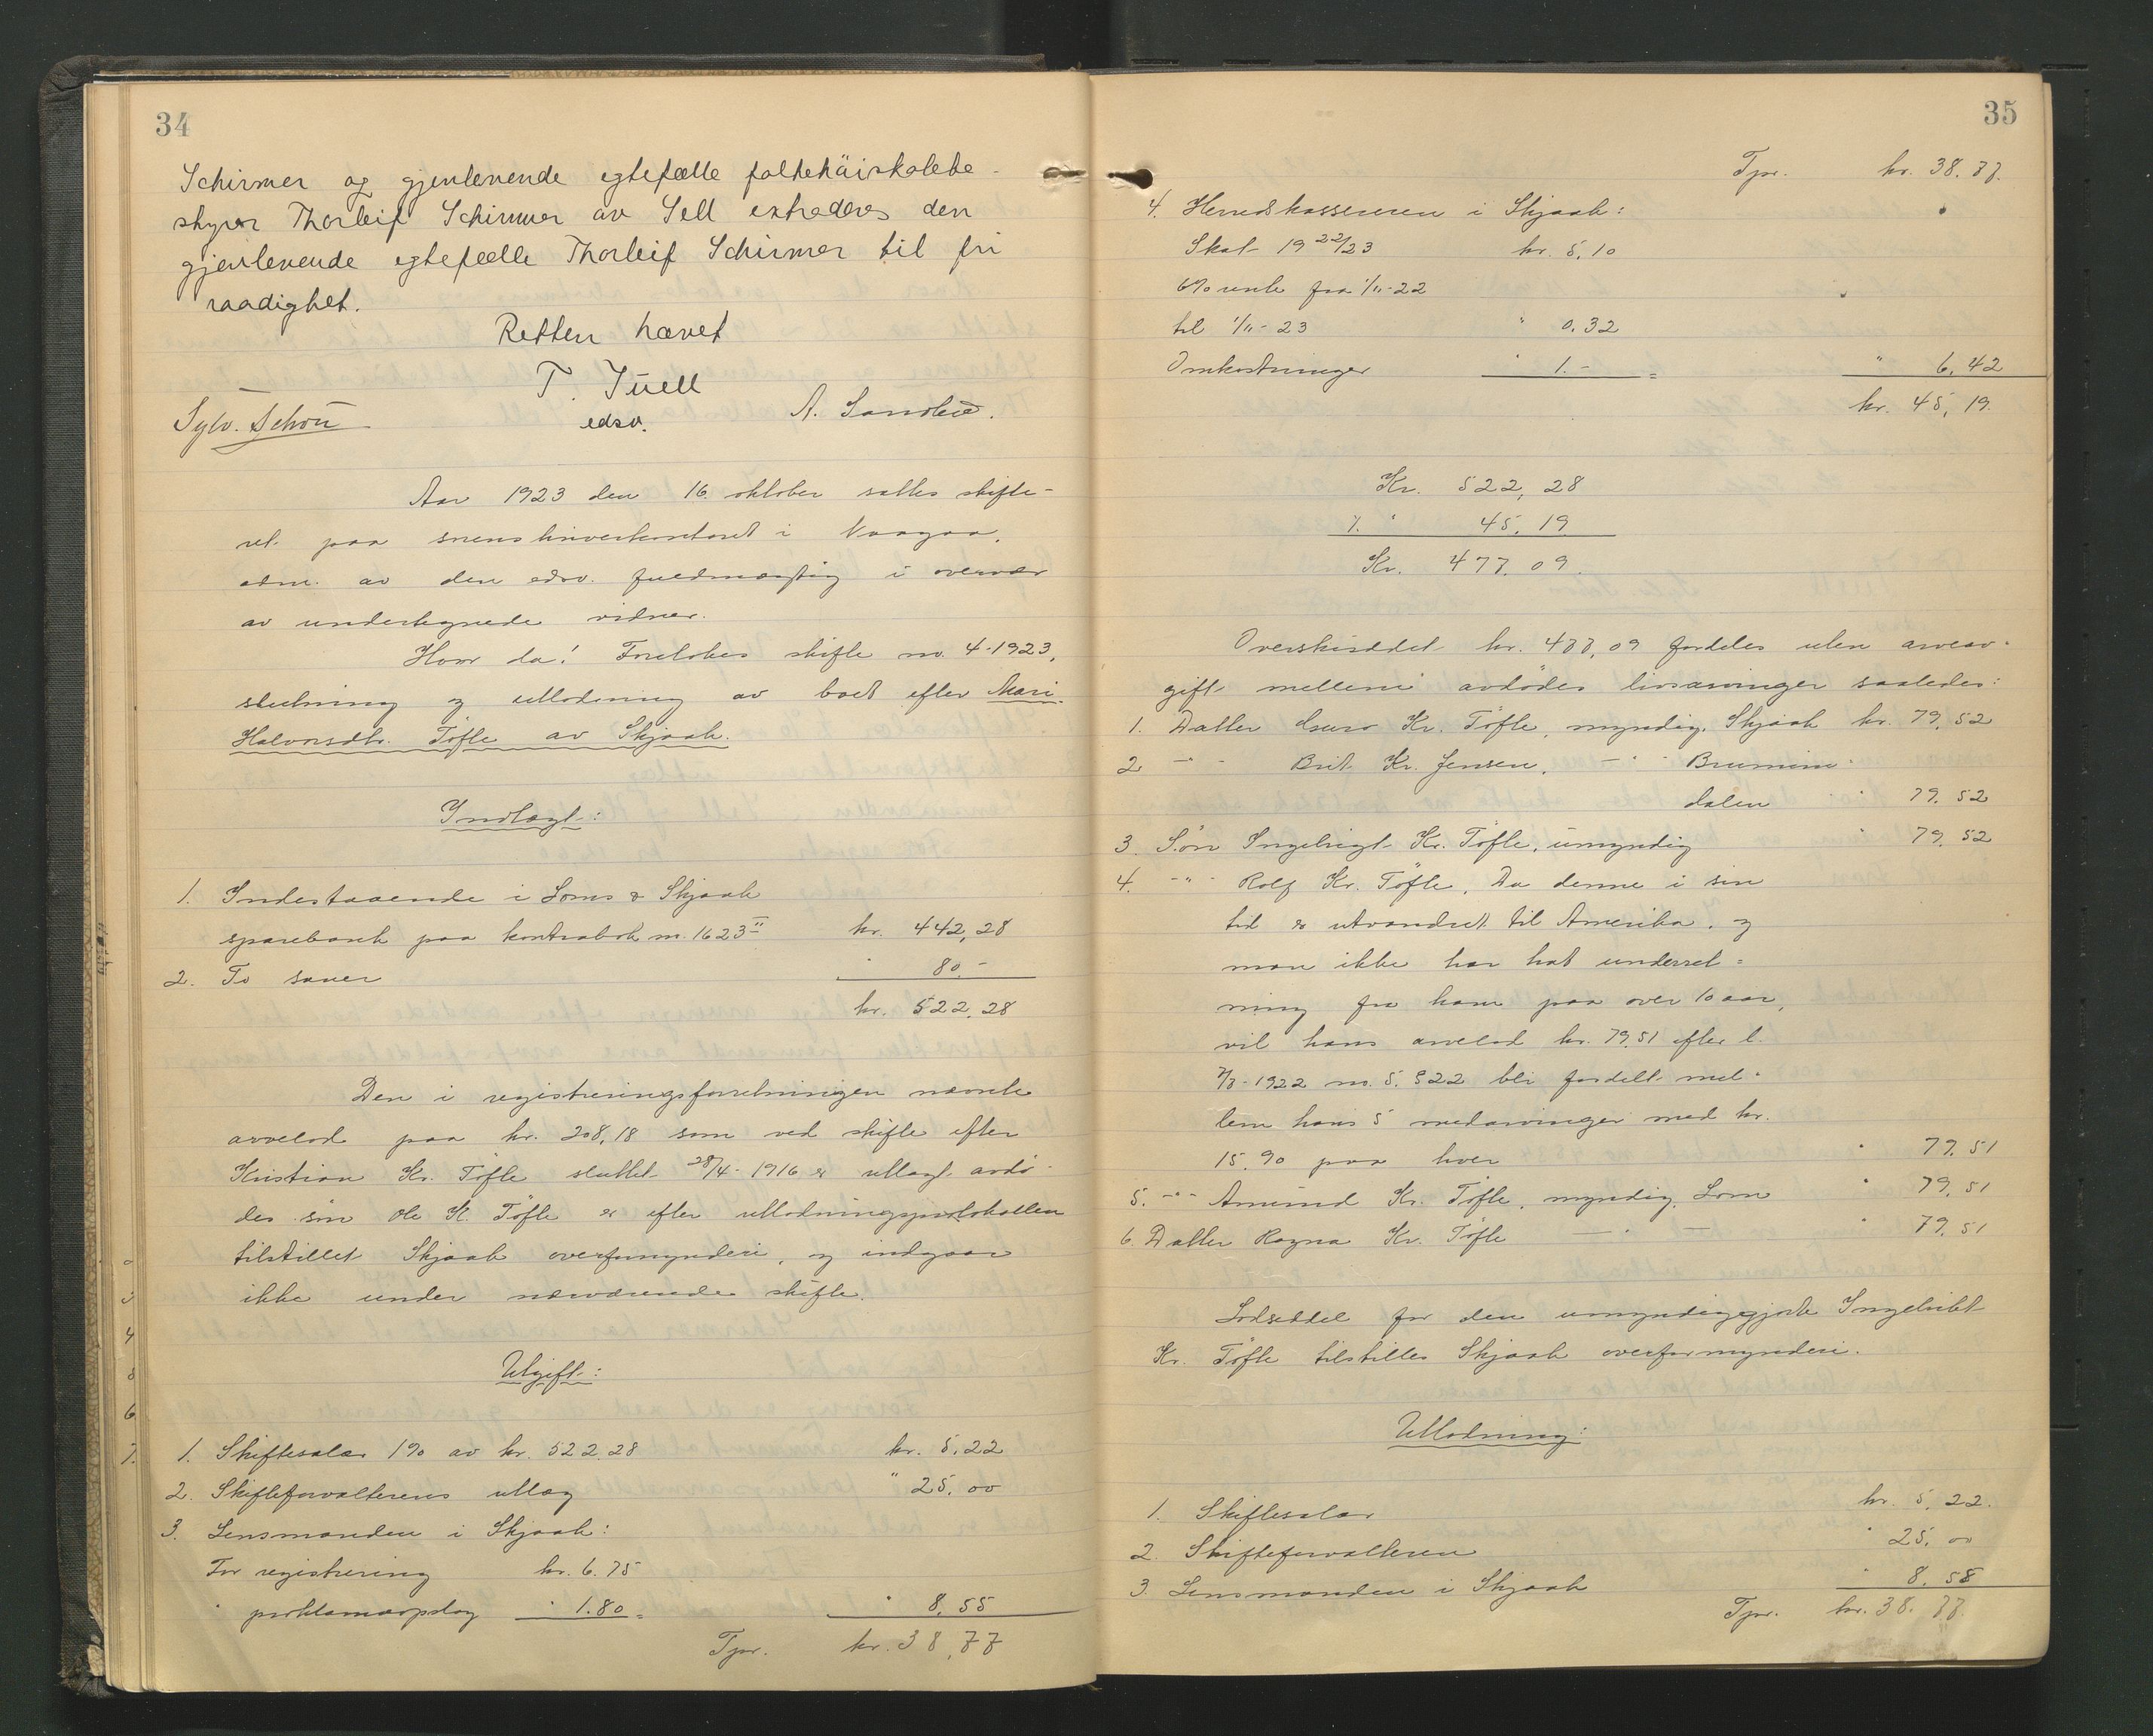 34
Schirmer og gjenlevende egtefælle folkehäiskolebe-
styrer Thorleif Schirmer av Sell extraderes den
gjenlevende egtefælle Thorleif Schirmer til fri
raadighet.
Retten hævet
T. Juell
edsv.
Sylv. Schou
A. Sandbu.
Aar 1923 den 16. oktober sattes skifte-
ret paa sorenskriverkontoret i Vaagaa,
adm. av den edsv. fuldmægtig i overvær
av undertegnede vidner.
Hvor da! Foretokes skifte no. 4-1923,
slutning og utlodning av boet efter Mari
Halvorsdtr. Töfte av Skjaak.
Indtægt:
1. Indestaaende i Loms & Skjaak
sparebank paa kontrabok nr. 1623 II kr. 442,28
2. To sauer " 80.-
kr. 522.28
Den i registreringsforretningen nævnte
arvelod paa kr. 208,18 som ved skifte efter
Kristian Kr. Töfte sluttet 28/4-1916 er utlagt avdö-
des sön Ole K. Töfte er efter utlodningsprotokollen
tilstillet Skjaak overformynderi, og indgaar
ikke under nærværende skifte.
Utgift:
1. Skiftesalær 1% av kr. 522.28 kr. 5.22
2. Skifteforvalterens utlæg " 25.00
3. Lensmanden i Skjaak:
For registrering kr. 6.75
" proklamaopslag " 1.80 = " 8.55
Tpr. kr. 38,77
35
Tpr. kr. 38.77.
4. Herredskassereren i Skjaak:
Skat 1922/23 kr. 5.10
6% rente fra 1/11-22
til 1/11-23 " 0.32
Omkostninger " 1.- = " 6,42
kr. 45,19.
Kr. 522,28
÷ " 45.19.
Kr. 477.09.
Overskuddet kr. 477,09 fordeles uten arveav-
gift mellem avdödes livsarvinger saaledes:
1. Datter Guro Kr. Töfte, myndig, Skjaak kr. 79.52
2. -"- Brit Kr. Jensen, -"- Brummun-
dalen " " 79.52
3. Sön Ingebrigt Kr. Töfte, umyndig " 79.52
4. -"- Rolf Kr. Töfte. Da denne i sin
tid er utvandret til Amerika, og
man ikke har hat underret-
ning fra ham paa over 10 aar,
vil hans arvelod kr. 79.51 efter l.
7/7-1922 no. 5. § 22 bli fordelt mel-
lem hans 5 medarvinger med kr.
15.90 paa hver " 79.51
5. -"- Amund Kr. Töfte, myndig, Lom " 79.51
6. Datter Ragna Kr. Töfte -"- — " 79.51
Lodseddel for den umyndiggjorte Ingebrikt
Kr. Töfte tilstilles Skjaak overformynderi.
Utlodning:
1. Skiftesalær kr. 5.22.
2. Skifteforvalteren " 25.00
3. Lensmanden i Skjaak " 8.55
Tpr. kr. 38.77.